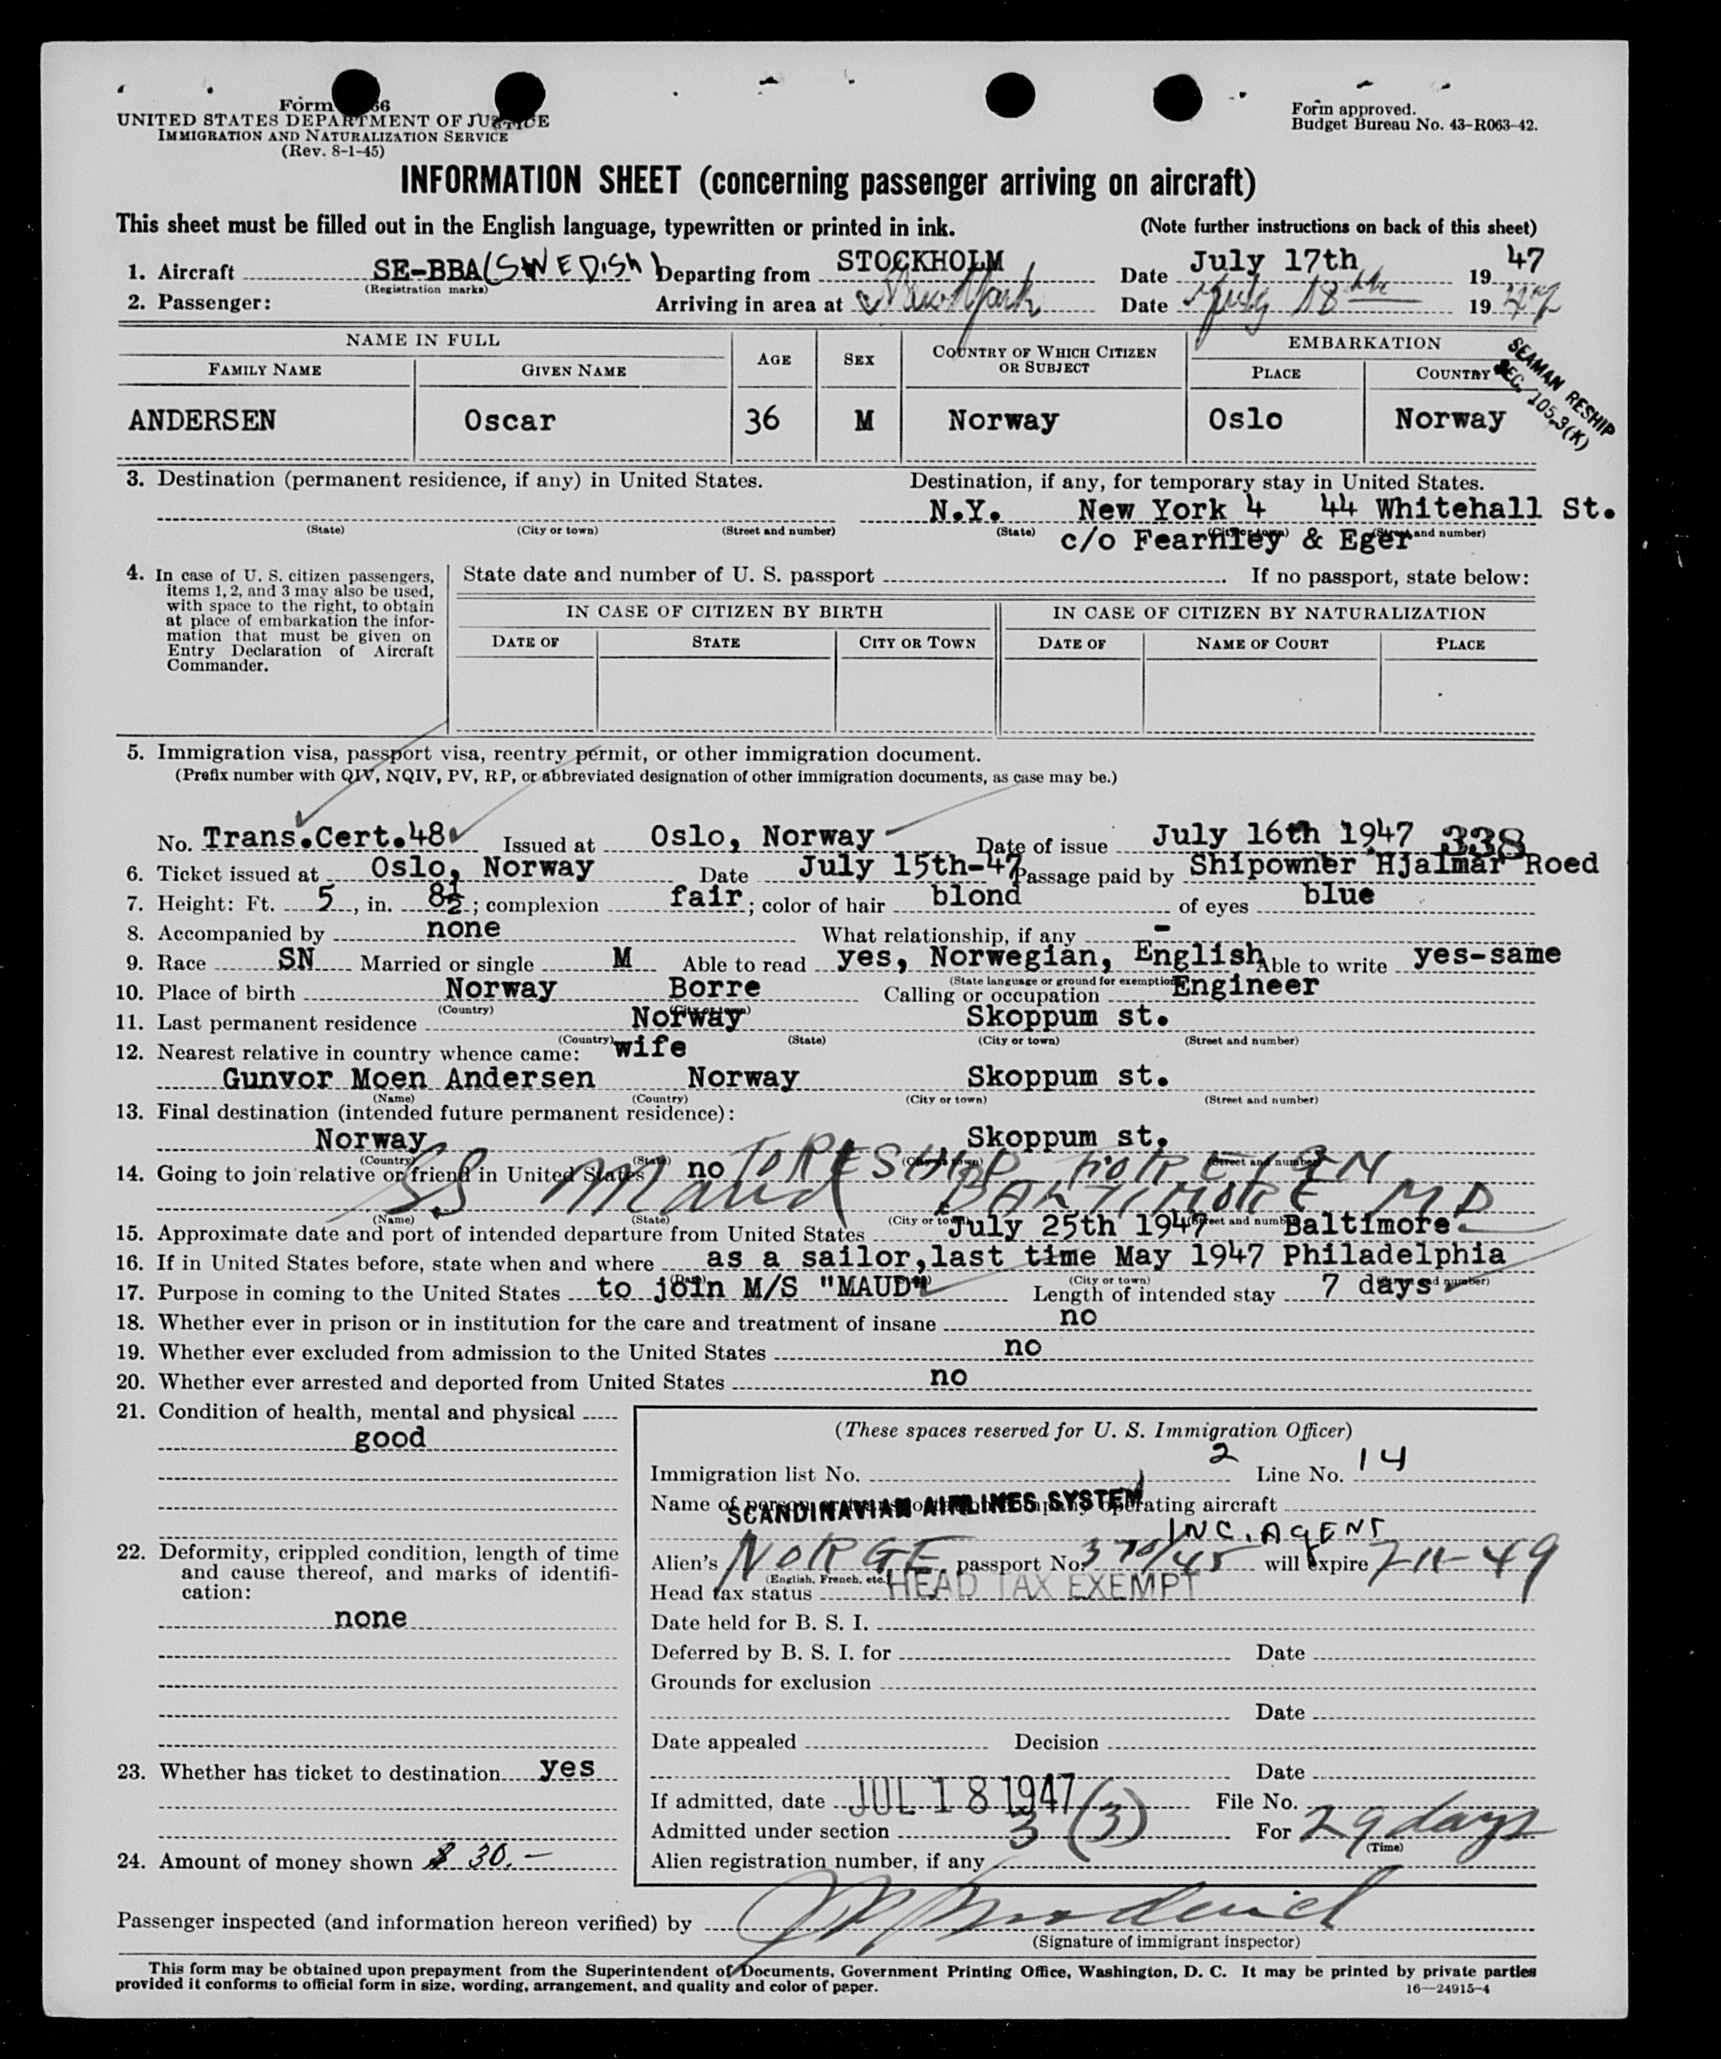 Form 66
UNITED STATES DEPARTMENT OF JUSTICE
IMMIGRATION AND NATURALIZATION SERVICE
(Rev. 8-1-45)
Form approved.
Budget Bureau No. 43-R063-42.
INFORMATION SHEET (concerning passenger arriving on aircraft)
This sheet must be filled out in the English language, typewritten or printed in ink. (Note further instructions on back of this sheet)
1. Aircraft SE-BBA (SWEDISH) Departing from STOCKHOLM Date July 17th 1947
(Registration marks)
2. Passenger: Arriving in area at New York Date July 18th 1947
NAME IN FULL AGE SEX COUNTRY OF WHICH CITIZEN OR SUBJECT EMBARKATION
FAMILY NAME GIVEN NAME PLACE COUNTRY
SEAMAN RESHIP
SEC. 105.3(K)
ANDERSEN Oscar 36 M Norway Oslo Norway
3. Destination (permanent residence, if any) in United States. Destination, if any, for temporary stay in United States.
N.Y. New York 4 44 Whitehall St.
(State) (City or town) (Street and number) (State) (City or town) (Street and number)
c/o Fearnley & Eger
4. In case of U. S. citizen passengers, items 1, 2, and 3 may also be used, with space to the right, to obtain at place of embarkation the information that must be given on Entry Declaration of Aircraft Commander.
State date and number of U. S. passport If no passport, state below:
IN CASE OF CITIZEN BY BIRTH IN CASE OF CITIZEN BY NATURALIZATION
DATE OF STATE CITY OR TOWN DATE OF NAME OF COURT PLACE
5. Immigration visa, passport visa, reentry permit, or other immigration document.
(Prefix number with QIV, NQIV, PV, RP, or abbreviated designation of other immigration documents, as case may be.)
No. Trans.Cert.48 Issued at Oslo, Norway Date of issue July 16th 1947 338
6. Ticket issued at Oslo, Norway Date July 15th-47 Passage paid by Shipowner Hjalmar Roed
7. Height: Ft. 5, in. 8½; complexion fair; color of hair blond of eyes blue
8. Accompanied by none What relationship, if any -
9. Race SN Married or single M Able to read yes, Norwegian, English Able to write yes-same
(State language or ground for exemption)
10. Place of birth Norway Borre Calling or occupation Engineer
(Country) (City or town)
11. Last permanent residence Norway Skoppum st.
(Country) (State) (City or town) (Street and number)
12. Nearest relative in country whence came: wife
Gunvor Moen Andersen Norway Skoppum st.
(Name) (Country) (City or town) (Street and number)
13. Final destination (intended future permanent residence):
Norway Skoppum st.
(Country) (State) (City or town) (Street and number)
14. Going to join relative or friend in United States no TO RESHIP FOREIGN
SS Maud BALTIMORE MD
(Name) (State) (City or town) (Street and number)
15. Approximate date and port of intended departure from United States July 25th 1947 Baltimore
16. If in United States before, state when and where as a sailor, last time May 1947 Philadelphia
(Date) (City or town) (Street and number)
17. Purpose in coming to the United States to join M/S "MAUD" Length of intended stay 7 days
18. Whether ever in prison or in institution for the care and treatment of insane no
19. Whether ever excluded from admission to the United States no
20. Whether ever arrested and deported from United States no
21. Condition of health, mental and physical
good
22. Deformity, crippled condition, length of time and cause thereof, and marks of identification:
none
23. Whether has ticket to destination yes
24. Amount of money shown $ 30.-
(These spaces reserved for U. S. Immigration Officer)
Immigration list No. 2 Line No. 14
Name of person or transportation company operating aircraft
SCANDINAVIAN AIRLINES SYSTEM
INC. AGENT
Alien's NORGE passport No. 370/45 will expire 7-11-49
(English, French, etc.)
Head tax status HEAD TAX EXEMPT
Date held for B. S. I.
Deferred by B. S. I. for Date
Grounds for exclusion
Date
Date appealed Decision
Date
If admitted, date JUL 18 1947 File No.
Admitted under section 3 (3) For 29 days
(Time)
Alien registration number, if any
Passenger inspected (and information hereon verified) by
(Signature of immigrant inspector)
This form may be obtained upon prepayment from the Superintendent of Documents, Government Printing Office, Washington, D. C. It may be printed by private parties
provided it conforms to official form in size, wording, arrangement, and quality and color of paper.
16—24915-4